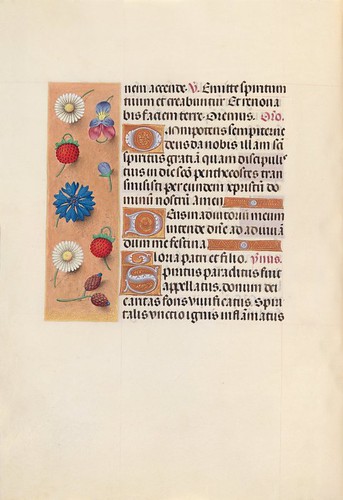 nem accende. V. Emitte spiritum
tuum et creabuntur Et renova
bis faciem terre. Oremus. Oro.
Omnipotens sempiterne
deus da nobis illam sci
spiritus gratiā quam discipulis
tuis in die scī penthecostes tran
smisisti per eundem xpistum do
minum nostrum amen
Deus in adiutorium meum
intende dnē ad adiuvan
dum me festina
Gloria patri et filio. ymnus.
Spiritus paraclitus fuit
appellatus. donum dei
caritas fons vivificatus. Spiri
talis unctio ignis inflamatus